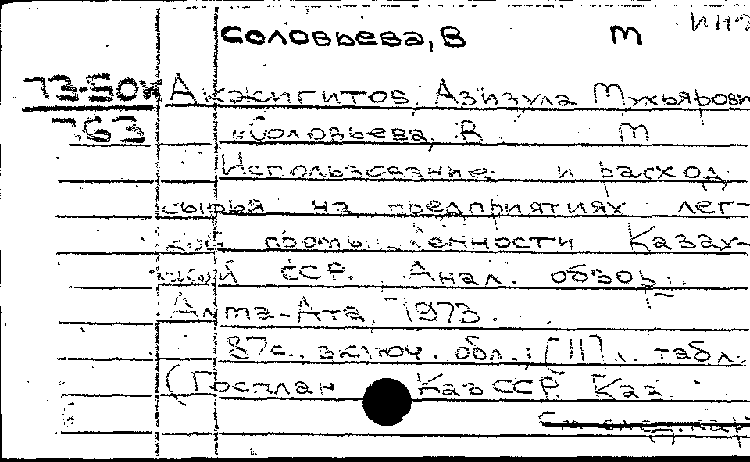 Соловьева, В М ИНЭ
73-50к Акжигитов, Азизула Мухьярови
763 и Соловьева, В М
Использование и расход
сырья на предприятиях лег-
кой промышленности Казах-
ской ССР. Анал. обзор.
Алма-Ата, 1973.
87с. включ. обл.; [11] л. табл.
(Госплан КазССР. Каз
См. след. кар